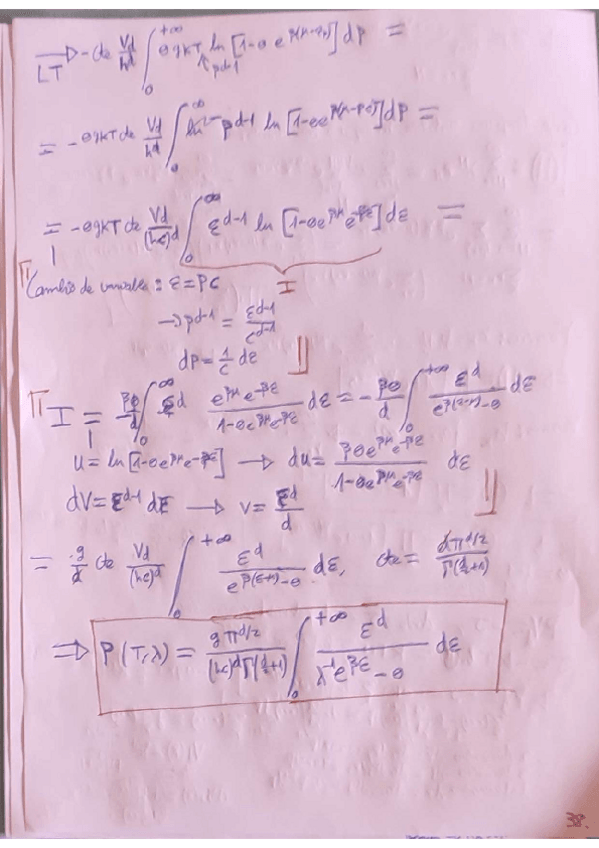 → LT - Cd Vd/h^d ∫_0^{+∞} θgKT p^{d-1} ln [1-θ e^{β(μ-pc)}] dp =
= -θgKT Cd Vd/h^d ∫_0^∞ p^{d-1} ln [1-θe^{β(μ-pc)}] dp =
= -θgKT Cd Vd/(hc)^d ∫_0^∞ ε^{d-1} ln [1-θe^{βμ}e^{-βε}] dε =
Cambio de variable : ε=pc I
→ p^{d-1} = ε^{d-1}/c^{d-1}
dp = 1/c dε
I = βθ/d ∫_0^∞ ε^d e^{βμ}e^{-βε}/(1-θe^{βμ}e^{-βε}) dε = -βθ/d ∫_0^{+∞} ε^d/(e^{β(ε-μ)}-θ) dε
u = ln [1-θe^{βμ}e^{-βε}] → du = βθe^{βμ}e^{-βε}/(1-θe^{βμ}e^{-βε}) dε
dV = ε^{d-1} dε → v = ε^d/d
= g/d Cd Vd/(hc)^d ∫_0^{+∞} ε^d/(e^{β(ε-μ)}-θ) dε, Cd = dπ^{d/2}/Γ(d/2+1)
⇒ P(T,λ) = gπ^{d/2}/((hc)^d Γ(d/2+1)) ∫_0^{+∞} ε^d/(λ^{-1}e^{βε}-θ) dε
38.